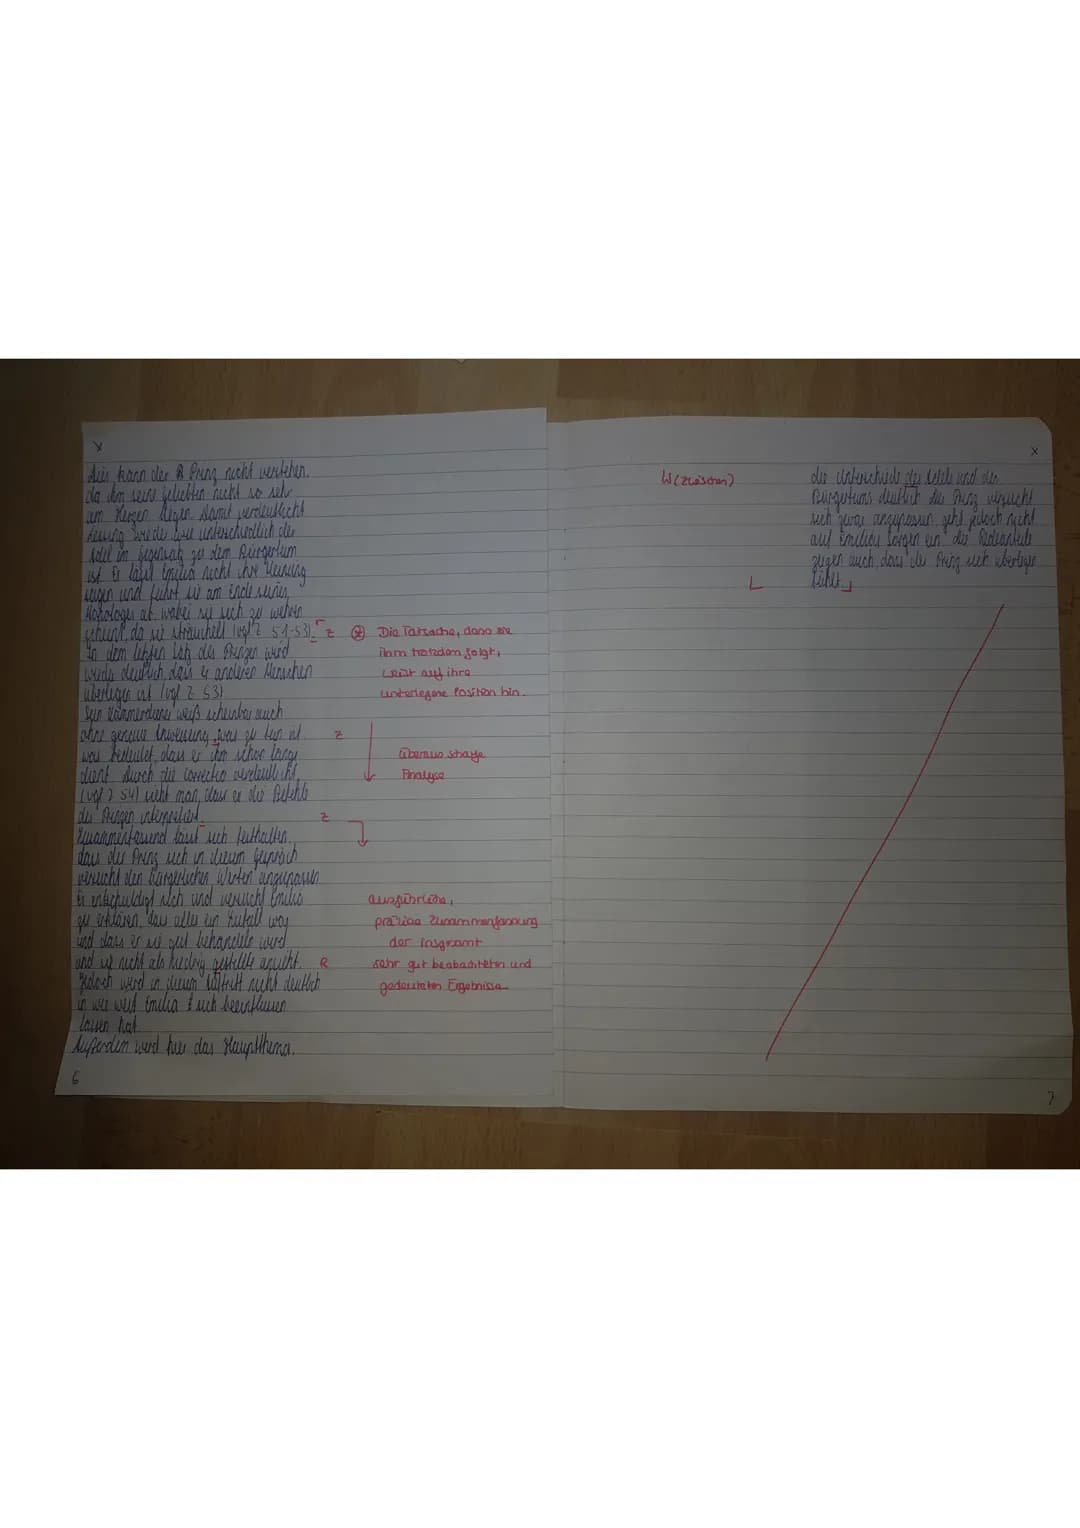 x
dies kann der Prinz nicht verstehen.
da ihm seine geliebten nicht so sehr
am Herzen liegen. Damit verdeutlicht
Lessing wieder wie unterschiedlich der
Adel im Gegensatz zu dem Bürgertum
ist. Er lässt Emilia nicht ihre Meinung
sagen und führt sie am Ende seines
Monologes ab, wobei sie sich zu wehren
scheint, da sie sträubend (vgl Z 51-53). Z
In dem letzten Satz des Prinzen wird
wieder deutlich, dass er anderen Menschen
überlegen ist (vgl Z 53)
Sein Kammerdiener weiß scheinbar auch
ohne genaue Anweisung, was zu tun ist. Z
was bedeutet, dass er ihm schon lange
dient. Durch die correctio verdeutlicht
(vgl Z 54) sieht man, dass er die Befehle
des Prinzen interpretiert. Z
Zusammenfassend lässt sich festhalten,
dass der Prinz sich in diesem Gespräch
versucht den bürgerlichen Werten anzupassen.
Er entschuldigt sich und versucht Emilia
zu erklären, dass alles ein Zufall war
und dass er sie gut behandeln wird
und sie nicht als niedrig gestellte ansieht. R
Jedoch wird in diesem Auftritt nicht deutlich
in wie weit Emilia sich beeinflussen
lassen hat
Außerdem wird hier das Hauptthema,
6
Die Tatsache, dass sie
ihm trotzdem folgt,
weist auf ihre
unterlegene Position hin.
überaus
Analyse
ausführliche,
präzise Zusammenfassung
der insgesamt
sehr gut beobachteten und
gedeuteten Ergebnisse
W (zwischen)
x
die Unterschiede des Adels und des
Bürgertums deutlich der Prinz versucht
sich zwar anzupassen geht jedoch nicht
auf Emilias Sorgen ein die Redeanteile
zeigen auch, dass der Prinz sich überlegen
fühlt.
7